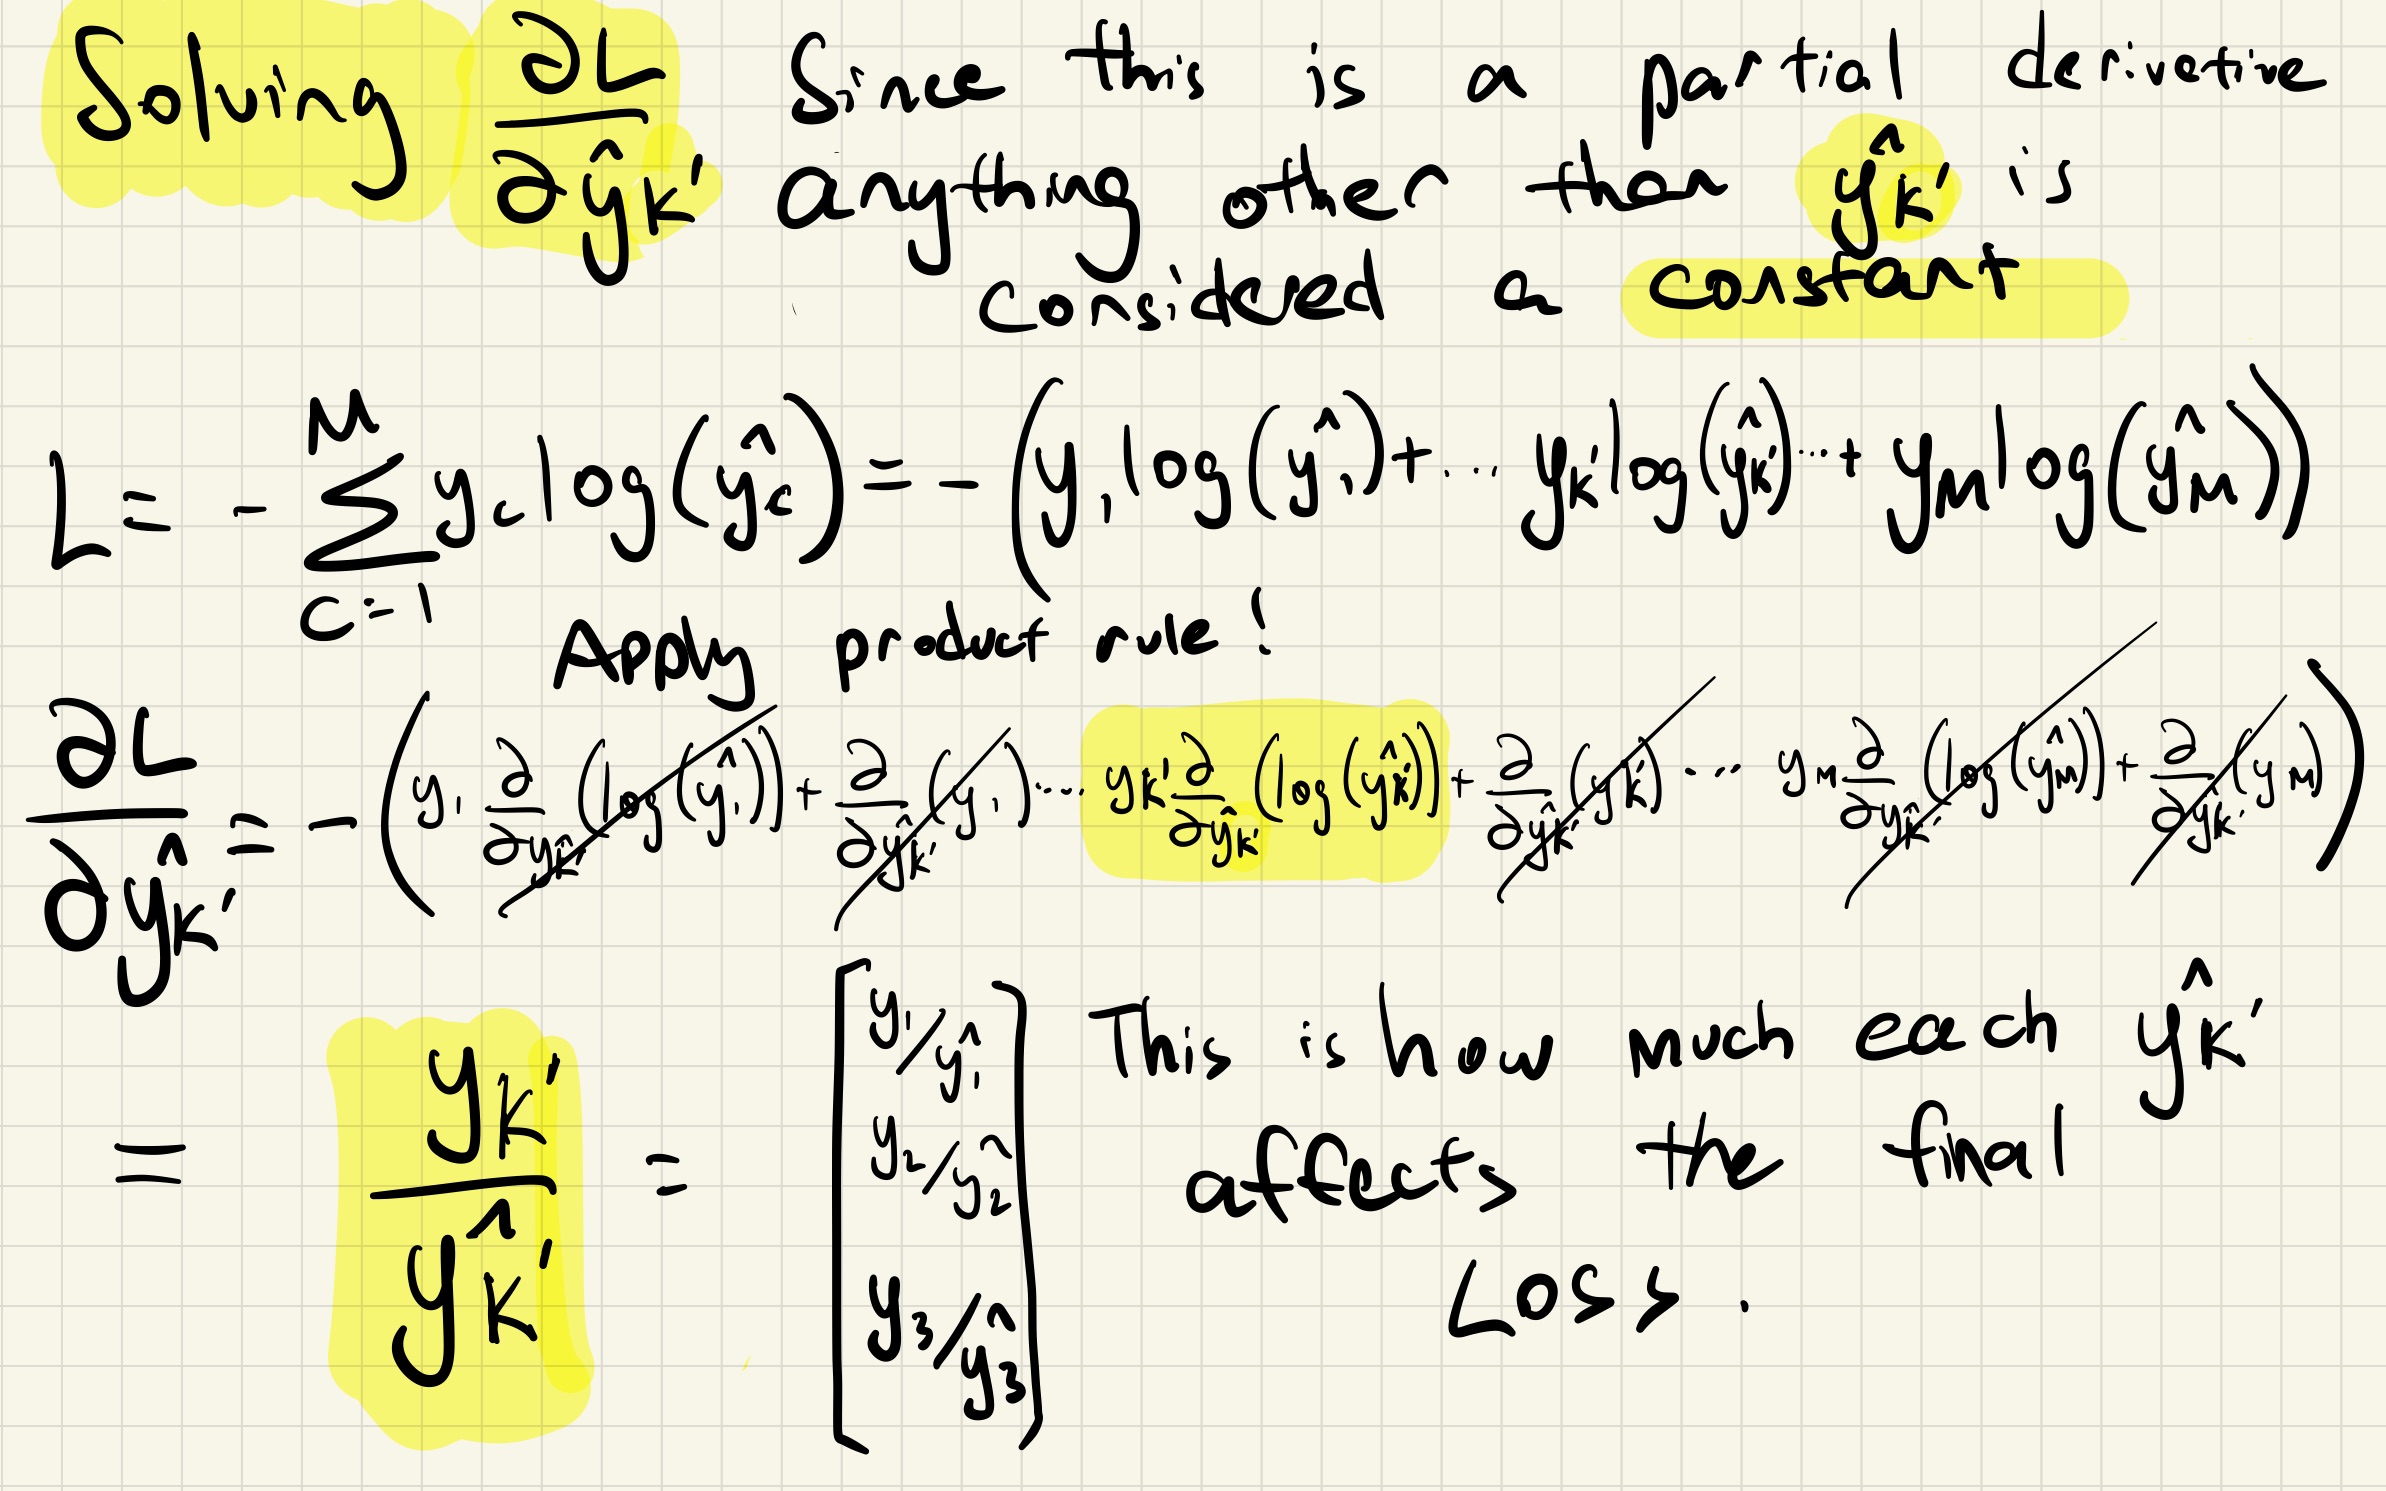 Solving ∂L/∂ŷk' Since this is a partial derivetive
anything other than ŷk' is
considered a constant
L = - Σ_{c=1}^{M} yc log(ŷc) = - (y1 log(ŷ1) + ... yk' log(ŷk') ... + yM log(ŷM))
Apply product rule!
∂L/∂ŷk' = - (y1 ∂/∂ŷk' (log(ŷ1)) + ∂/∂ŷk' (y1) ... yk' ∂/∂ŷk' (log(ŷk')) + ∂/∂ŷk' (yk') ... yM ∂/∂ŷk' (log(ŷM)) + ∂/∂ŷk' (yM))
= yk'/ŷk' = [y1/ŷ1 y2/ŷ2 y3/ŷ3]
This is how much each ŷk'
affects the final
Loss.